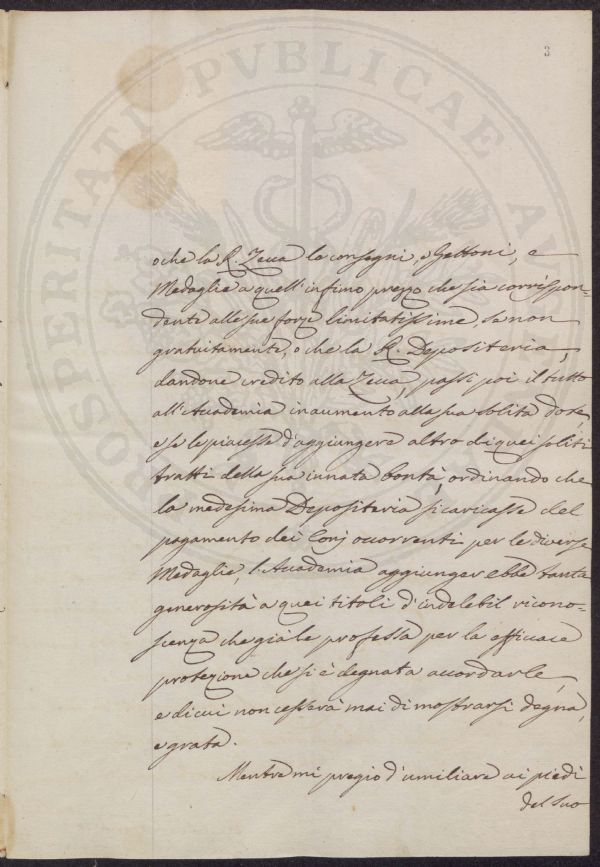 3
PROSPERITATI PVBLICAE AVGENDAE
o che la R. Zecca la consegni, e Gettoni, e
Medaglie a quell'infimo prezzo che sia corrispon=
dente alle sue forze limitatissime, se non
gratuitamente, o che la R. Depositeria,
dandone credito alla Zecca, passi poi il tutto
all'Accademia in aumento alla sua solita dote,
e se le piacesse d'aggiungere altro di quei soliti
tratti della sua innata bontà, ordinando che
la medesima Depositeria si caricasse del
pagamento dei Conj occorrenti per le diverse
Medaglie, l'Accademia aggiungerebbe tanta
generosità a quei titoli d'indelebil ricono=
scenza che già le professa per la efficace
protezione che si è degnata accordarle,
e di cui non cesserà mai di mostrarsi degna,
e grata.
Mentre mi pregio d'umiliare ai piedi
del Suo